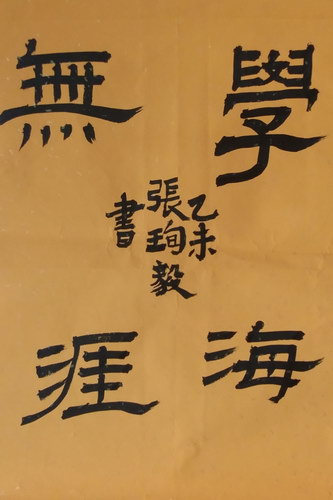 學海
無涯
乙未
張珣毅
書